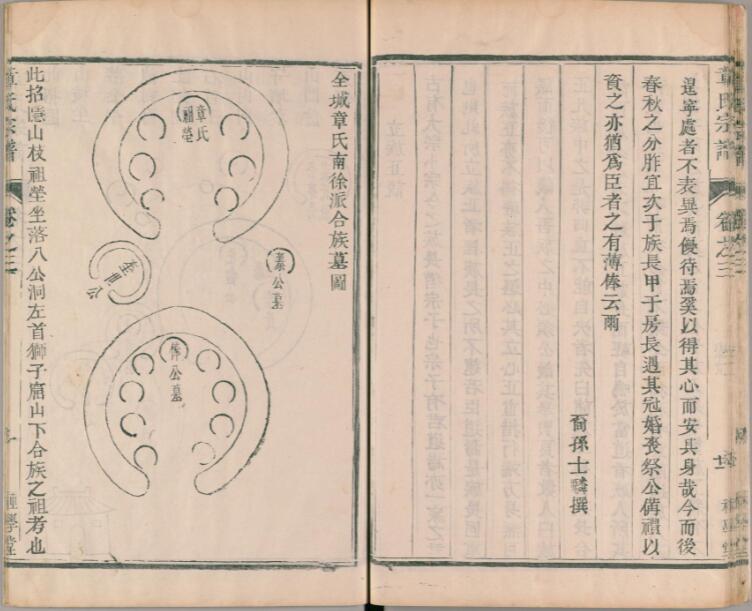 章氏宗譜
卷之三
遑寧處者不表異焉優待焉奚以得其心而安其身哉今而後
春秋之分胙宜次于族長甲于房長遇其冠婚喪祭公備禮以
資之亦猶為臣者之有薄俸云爾
裔孫士驎撰
全城章氏南徐派合族墓圖
章氏
祖塋
公墓
公墓
此招隱山枝祖塋坐落八公洞左首獅子窟山下合族之祖考也
章氏宗譜
卷之三